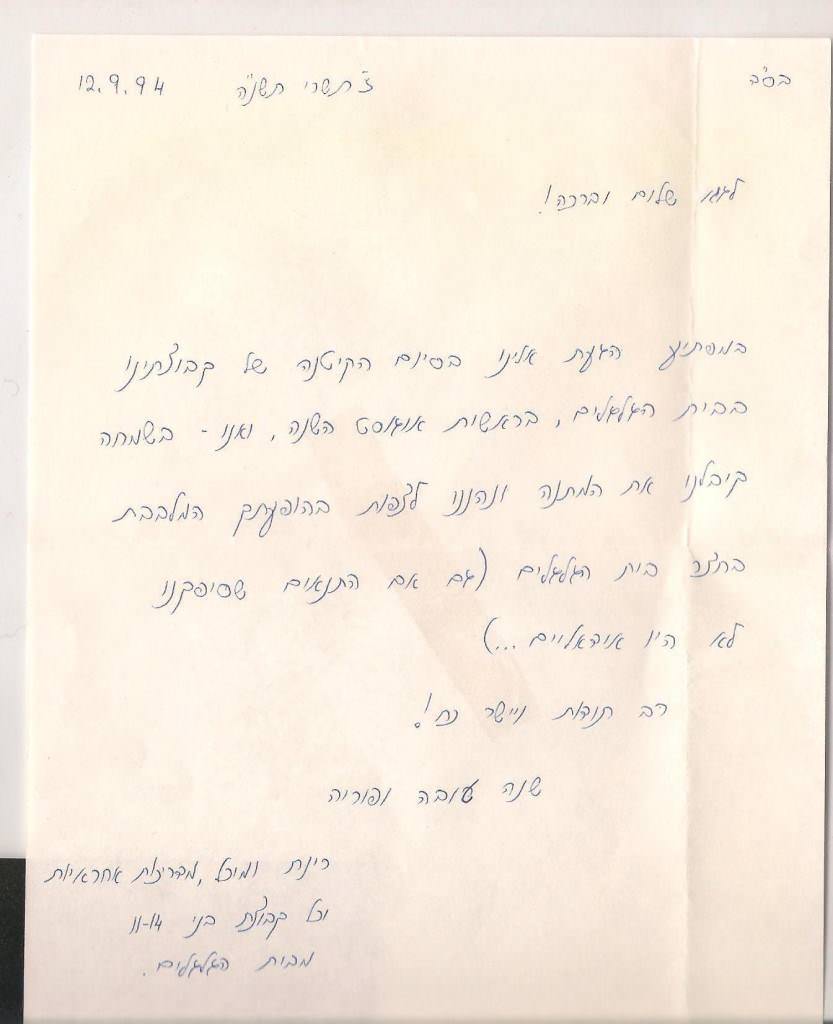 בס"ב ז' תשרי תשנ"ה 12.9.94
לגגו שלום וברכה!
במפתיע הגעת אלינו בסיום הקיטנה של קבוצתינו
בבית הגלגלים, בראשית אוגוסט השנה, ואנו - בשמחה
קיבלנו את המתנה ונהננו לצפות בהופעתך המלבבת
בחצר בית הגלגלים (גם אם התנאים שסיפקנו
לא היו אידאליים...)
רב תודות ויישר כח!
שנה טובה ופוריה
רינת ומיכל, מדריכות אחראיות
וכל קבוצת בני 11-14
מבית הגלגלים.